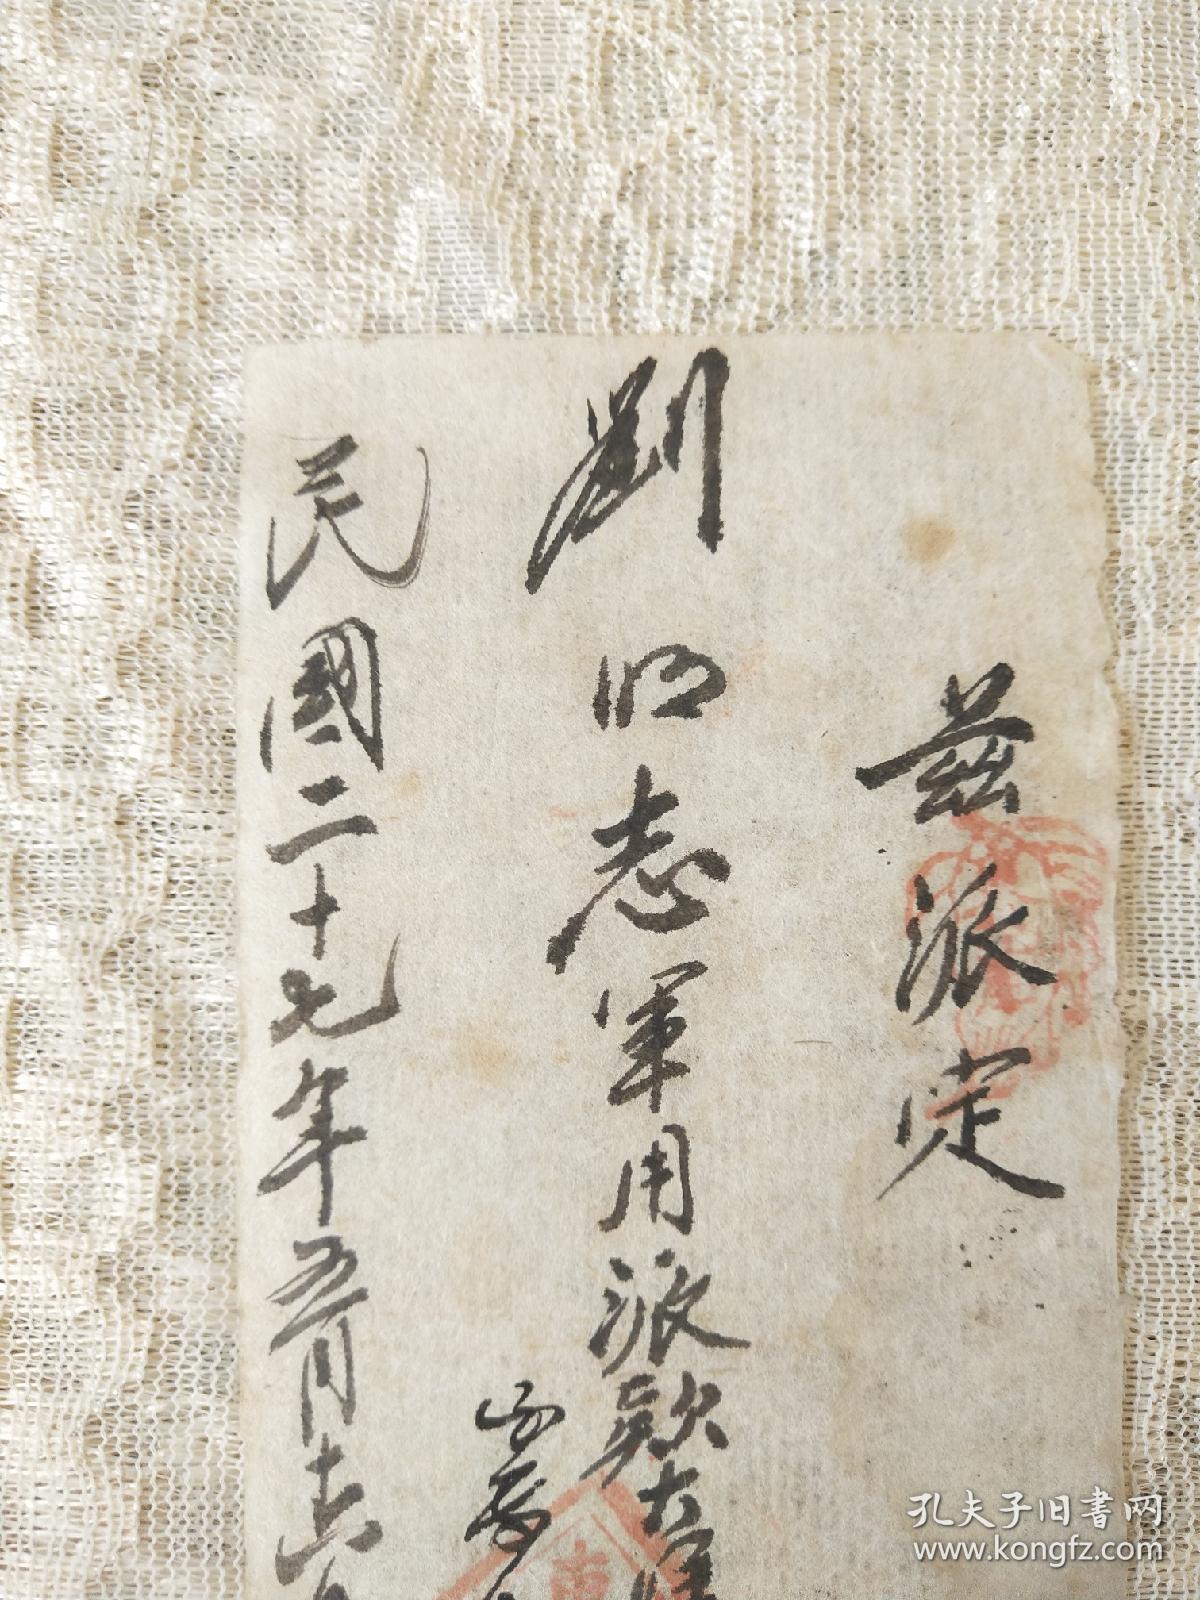 茲派定
劉明志軍用派款大洋
民國二十七年五月
孔夫子旧书网
www.kongfz.com